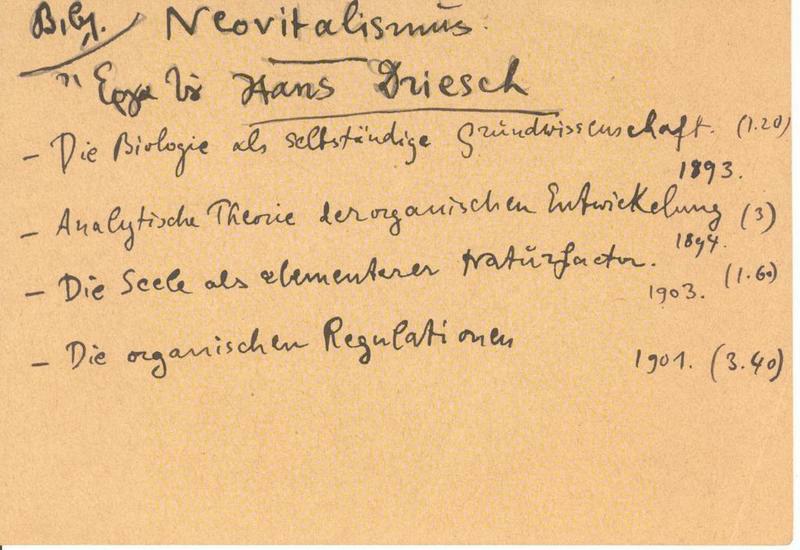 Bibl. Neovitalismus.
Έργα Hans Driesch
– Die Biologie als selbständige Grundwissenschaft. (1.20)
1893.
– Analytische Theorie der organischen Entwickelung (3)
1894.
– Die Seele als elementarer Naturfactor. (1.60)
1903.
– Die organischen Regulationen
1901. (3.40)